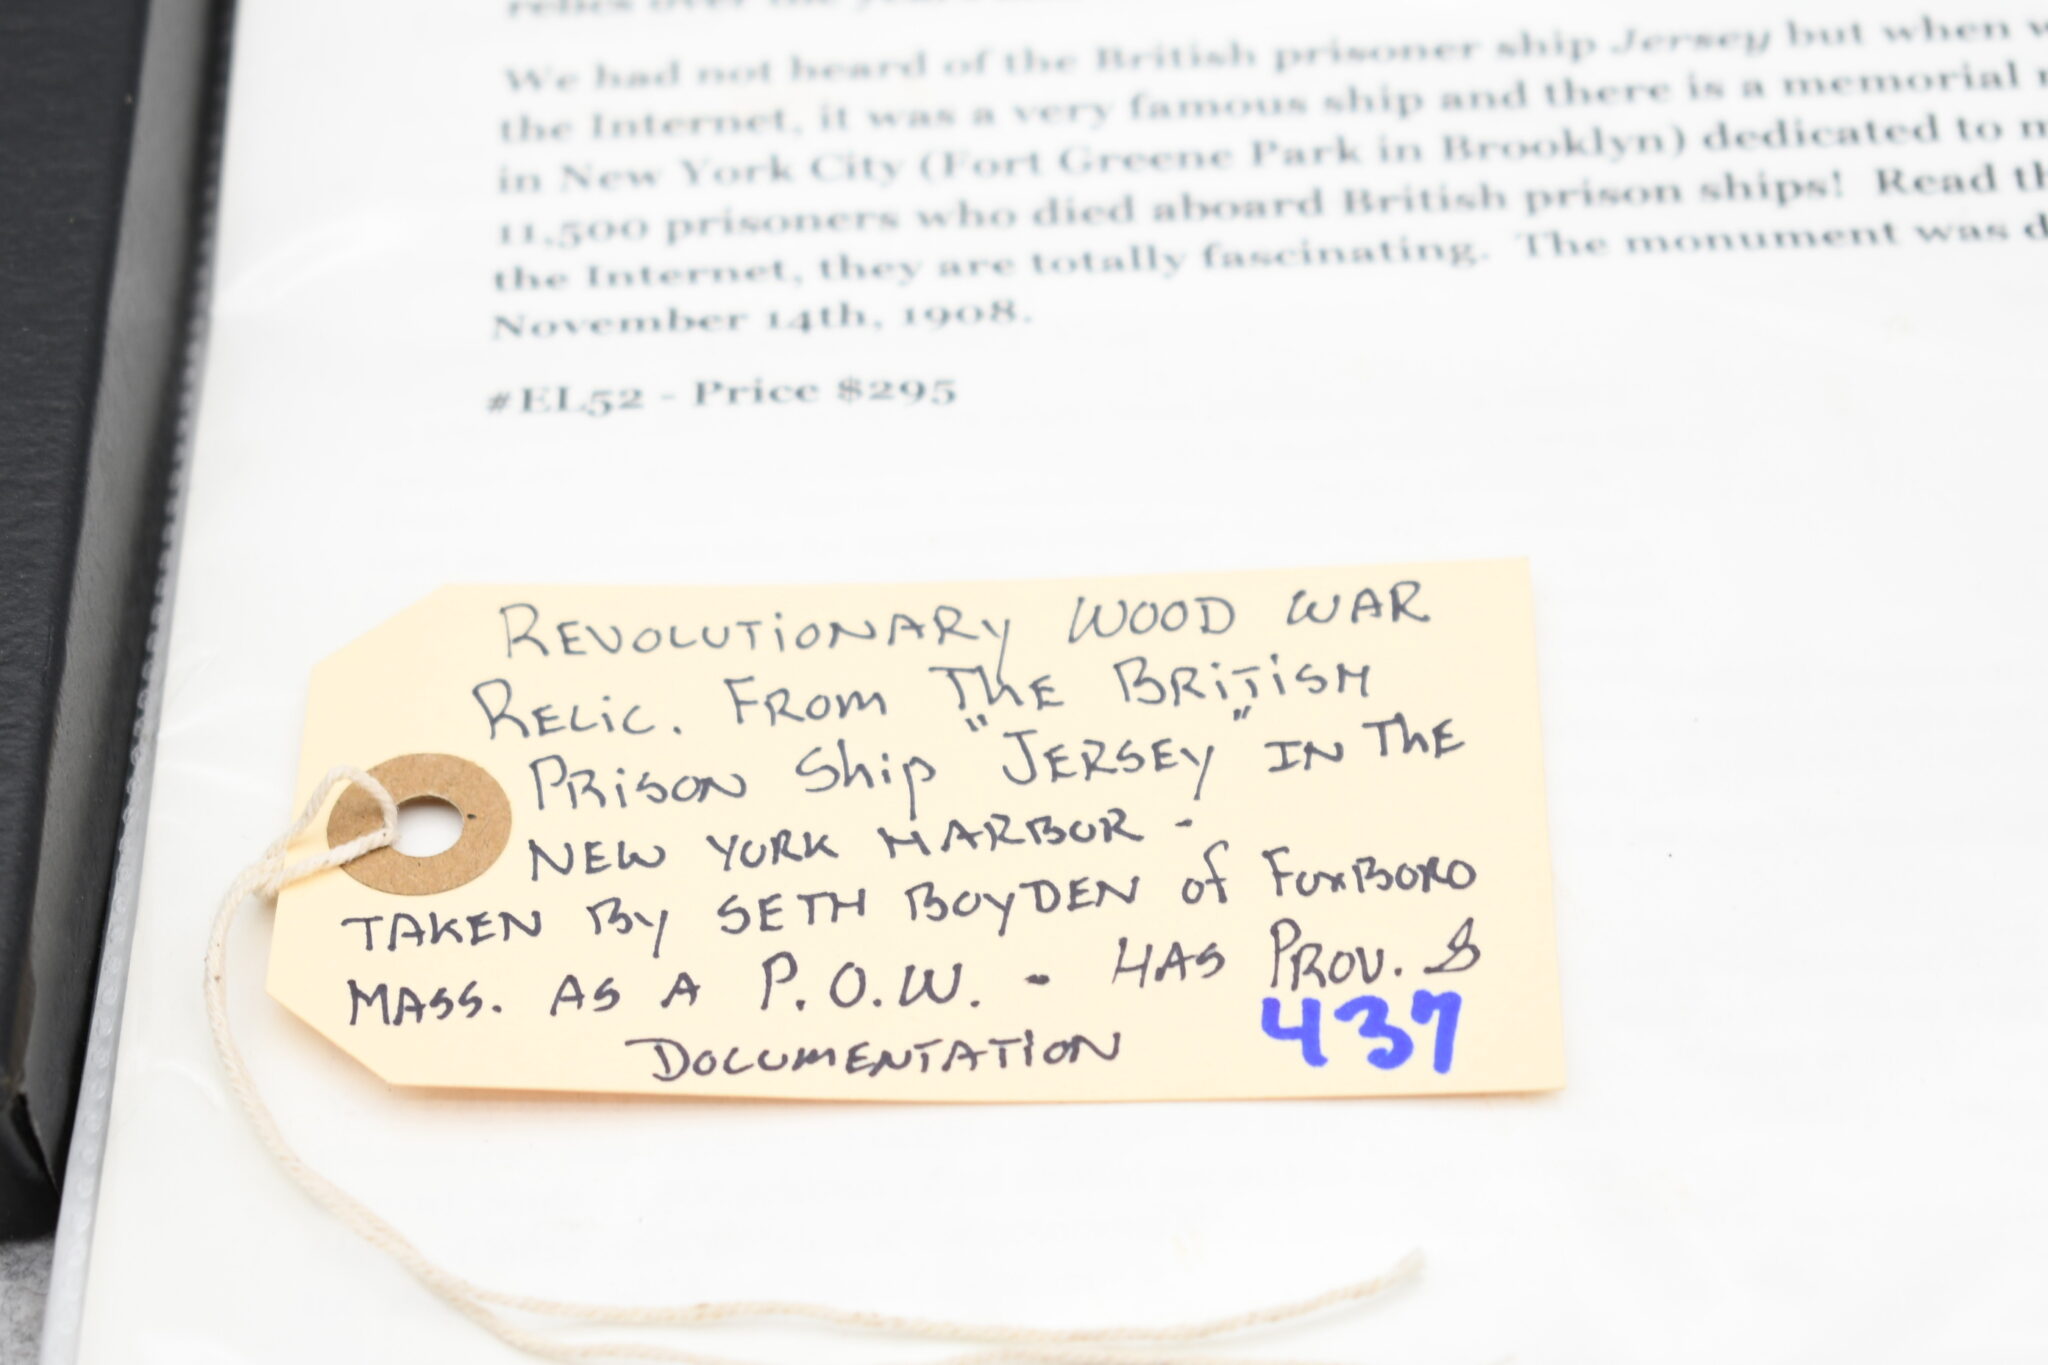 relics over the years
We had not heard of the British prisoner ship Jersey but when
the Internet, it was a very famous ship and there is a memorial
in New York City (Fort Greene Park in Brooklyn) dedicated to
11,500 prisoners who died aboard British prison ships! Read
the Internet, they are totally fascinating. The monument was
November 14th, 1908.
#EL52 - Price $295
REVOLUTIONARY WOOD WAR
RELIC. FROM THE BRITISH
PRISON Ship "JERSEY" IN THE
NEW YORK HARBOR -
TAKEN BY SETH BOYDEN of FOXBORO
MASS. AS A P.O.W. - HAS PROV. &
DOCUMENTATION
437